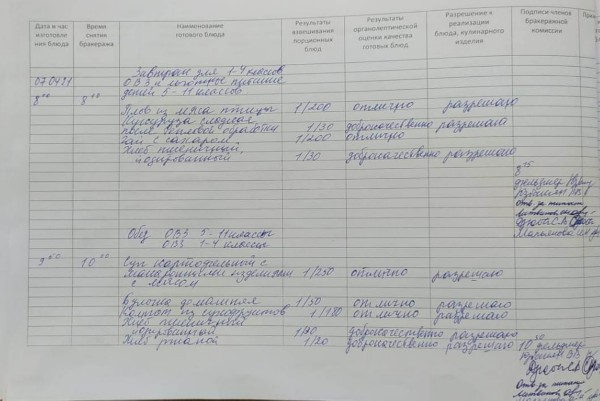 Дата и час изготовления блюда
Время снятия бракеража
Наименование готового блюда
Результаты взвешивания порционных блюд
Результаты органолептической оценки качества готовых блюд
Разрешение к реализации блюда, кулинарного изделия
Подписи членов бракеражной комиссии
07.04.21 Завтрак для 1-4 классов
ОВЗ и льготное питание
детей 5-11 классов
8 00 8 10
Плов из мяса птицы 1/200 отлично разрешаю
Кукуруза сладкая,
после тепловой обработки 1/30 доброкачественно разрешаю
Чай с сахаром 1/200 отлично
Хлеб пшеничный,
йодированный 1/30 доброкачественно разрешаю
фельдшер
Отв за питан
Обед ОВЗ 5-11 классы
ОВЗ 1-4 классы
10
Суп картофельный с
макаронными изделиями 1/250 отлично разрешаю
с мясом
Булочка домашняя 1/50 отлично разрешаю
Компот из сухофруктов 1/180 отлично разрешаю
Хлеб пшеничный
йодированный 1/40 доброкачественно разрешаю
Хлеб ржаной 1/20 доброкачественно разрешаю 10 30 фельдшер
Отв за питан